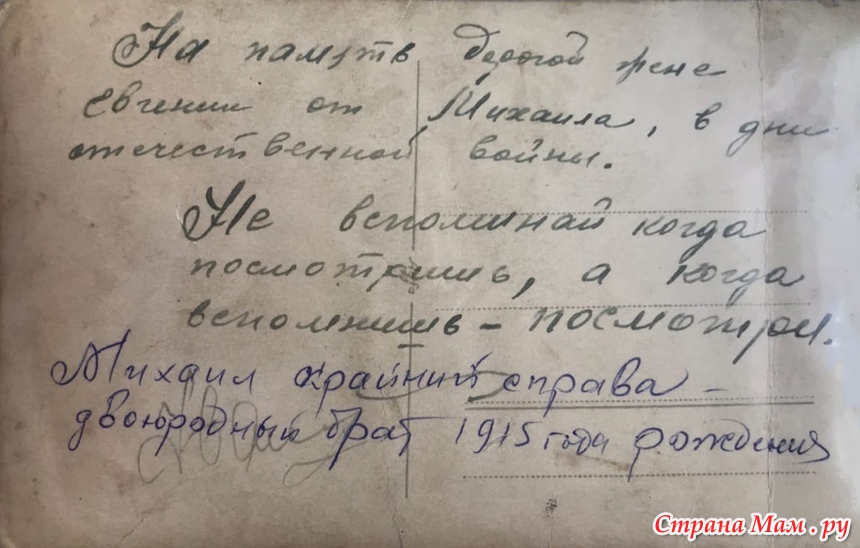 На память дорогой жене
Евгении от Михаила, в дни
отечественной войны.
Не вспоминай когда
посмотришь, а когда
вспомнишь – посмотри.
Михаил крайний справа –
двоюродный брат 1915 года рождения
Страна Мам.ру